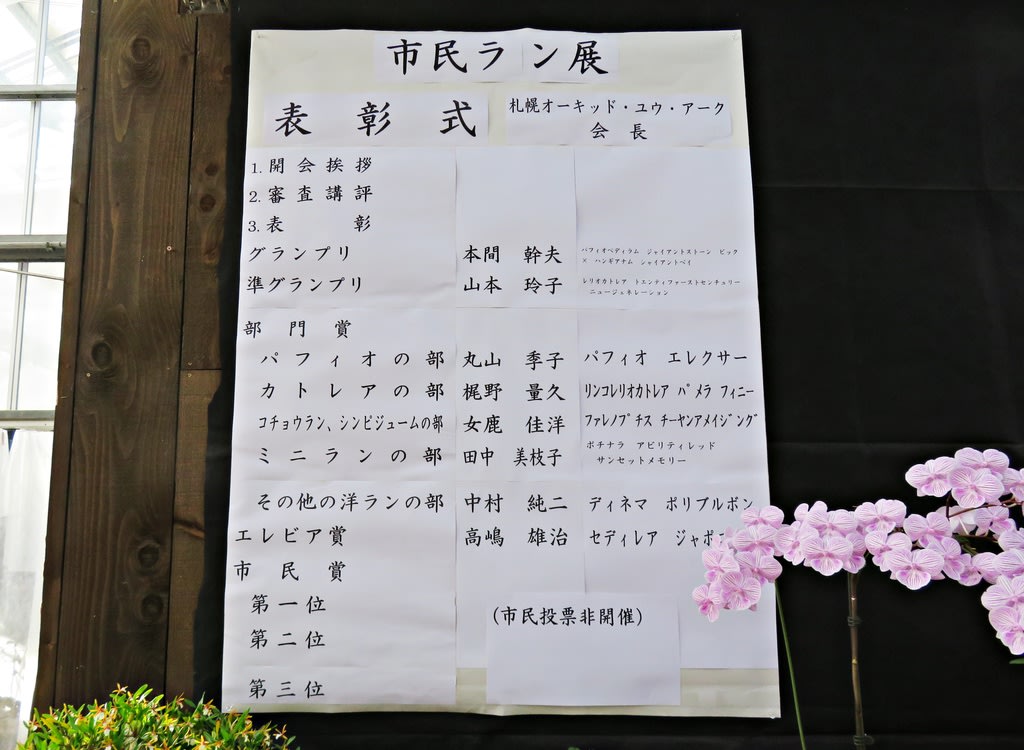 市民ラン展
表彰式
札幌オーキッド・ユウ・アーク
会長
1. 開会挨拶
2. 審査講評
3. 表彰
グランプリ 本間 幹夫 パフィオペディラム ジャイアントストーン ビック
× ハンギアナム ジャイアントベイ
準グランプリ 山本 玲子 レリオカトレア トエンティファーストセンチュリー
ニュージェネレーション
部門賞
パフィオの部 丸山 季子 パフィオ エレクサー
カトレアの部 梶野 量久 リンコレリオカトレア パメラ フィニー
コチョウラン、シンビジュームの部 女鹿 佳洋 ファレノプチス チーヤンアメイジング
ミニランの部 田中 美枝子 ポチナラ アビリティレッド
サンセットメモリー
その他の洋ランの部 中村 純二 ディネマ ポリブルボン
エレビア賞 高嶋 雄治 セディレア ジャポ
市民賞
第一位
第二位
第三位
(市民投票非開催)